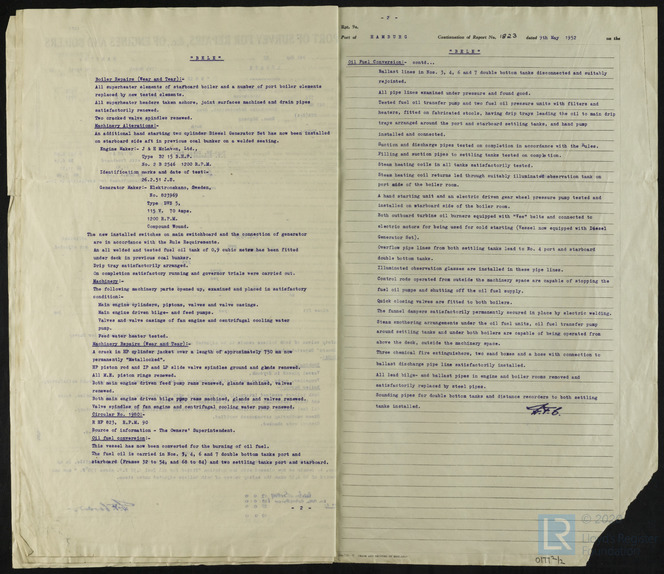 "BELE"
Boiler Repairs (Wear and Tear):-
All superheater elements of starboard boiler and a number of port boiler elements
replaced by new tested elements.
All superheater headers taken ashore, joint surfaces machined and drain pipes
satisfactorily renewed.
Two cracked valve spindles renewed.
Machinery Alterations:-
An additional hand starting two cylinder Diesel Generator Set has now been installed
on starboard side aft in previous coal bunker on a welded seating.
Engine Maker:- J & H McLaren, Ltd.,
Type
No. 2 D 2546 1200 R.P.M.
Identification marks and date of test:-
26.2.51 J.H.
Generator Maker:- Elektromekano, Sweden,
No. 823969
Type
115 V. 70 Amps.
1200 R.P.M.
Compound Wound.
The new installed switches on main switchboard and the connection of generator
are in accordance with the Rule Requirements.
An all welded and tested fuel oil tank of 0,9 cubic metre has been fitted
under deck in previous coal bunker.
Drip tray satisfactorily arranged.
On completion satisfactory running and governor trials were carried out.
Machinery:-
The following machinery parts opened up, examined and placed in satisfactory
condition:-
Main engine cylinders, pistons, valves and valve casings.
Main engine driven bilge- and feed pumps.
Valves and valve casings of fan engine and centrifugal cooling water
pump.
Feed water heater tested.
Machinery Repairs (Wear and Tear):-
A crack in HP cylinder jacket over a length of approximately 750 mm now
permanently "Metallocked".
HP piston rod and IP and LP slide valve spindles ground and glands renewed.
All M.E. piston rings renewed.
Both main engine driven feed pump rams renewed, glands machined, valves
renewed.
Both main engine driven bilge pump rams machined, glands and valves renewed.
Valve spindles of fan engine and centrifugal cooling water pump renewed.
Circular No. 1980:-
R.P.M. 90
Source of information - The Owners' Superintendent.
Oil fuel conversion:-
This vessel has now been converted for the burning of oil fuel.
The fuel oil is carried in Nos. 3, 4, 6 and 7 double bottom tanks port and
starboard (Frames 32 to 54, and 60 to 84) and two settling tanks port and starboard.
- 2 -
Rpt. No.
Port of HAMBURG Continuation of Report No. 1823 dated 9th May 1952 on the
"BELE"
Oil Fuel Conversion:- contd...
Ballast lines in Nos. 3, 4, 6 and 7 double bottom tanks disconnected and suitably
rejointed.
All pipe lines examined under pressure and found good.
Tested fuel oil transfer pump and two fuel oil pressure units with filters and
heaters, fitted on fabricated stools, having drip trays leading the oil to main drip
trays arranged around the port and starboard settling tanks, and hand pump
installed and connected.
Suction and discharge pipes tested on completion in accordance with the Rules.
Filling and suction pipes to settling tanks tested on completion.
Steam heating coils in all tanks satisfactorily tested.
Steam heating coil returns led through suitably illuminated observation tank on
port side of the boiler room.
A hand starting unit and an electric driven gear wheel pressure pump tested and
installed on starboard side of the boiler room.
Both outboard turbine oil burners equipped with "Vee" belts and connected to
electric motors for being used for cold starting (Vessel now equipped with Diesel
Generator Set).
Overflow pipe lines from both settling tanks lead to No. 4 port and starboard
double bottom tanks.
Illuminated observation glasses are installed in these pipe lines.
Control rods operated from outside the machinery space are capable of stopping the
fuel oil pumps and shutting off the oil fuel supply.
Quick closing valves are fitted to both boilers.
The funnel dampers satisfactorily permanently secured in place by electric welding.
Steam smothering arrangements under the oil fuel units, oil fuel transfer pump
around settling tanks and under both boilers are capable of being operated from
above the deck, outside the machinery space.
Three chemical fire extinguishers, two sand boxes and a hose with connection to
ballast discharge pipe line satisfactorily installed.
All lead bilge- and ballast pipes in engine and boiler rooms removed and
satisfactorily replaced by steel pipes.
Sounding pipes for double bottom tanks and distance recorders to both settling
tanks installed.
LR
© 202
Lloyd's Register
Foundation
0177 2/2